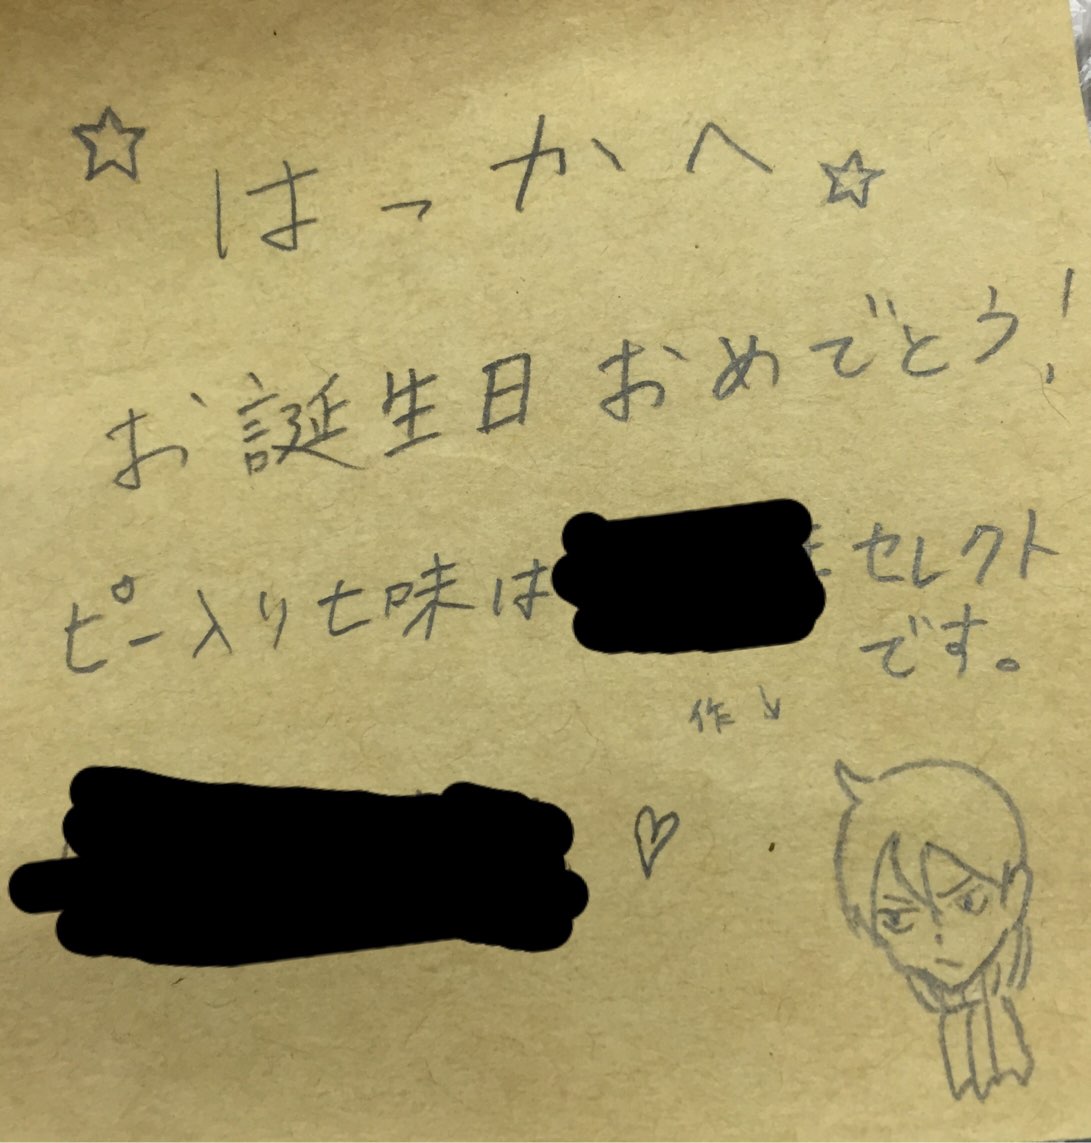 ☆はっかへ☆
お誕生日おめでとう!
ピー入り七味は
セレクト
です。
作↘
♡